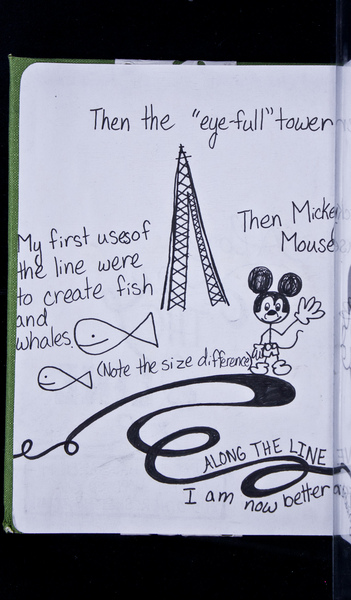 Then the "eye-full" tower
My first uses of
the line were
to create fish
and
whales.
(Note the size difference)
Then Mickey
Mouse
ALONG THE LINE
I am now better